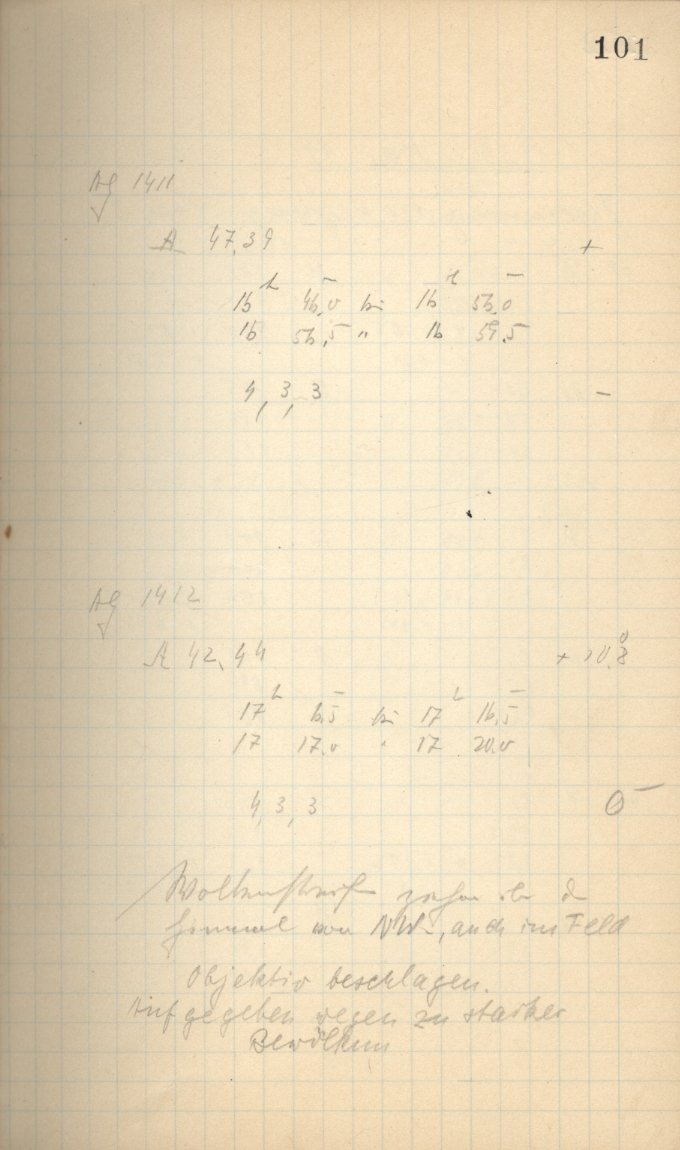 101
AG 1411
A 47,39 +
16h 46,0 bis 16h 56,0
16 56,5 " 16 59,5
4, 3, 3 –
AG 1412
A 42,44
17h 6,5 bis 17h 16,5
17 17,0 " 17 20,0
4, 3, 3
Wolkenstreifen ziehen über
Himmel von NW, auch im Feld
Objektiv beschlagen.
Aufgegeben wegen zu starker